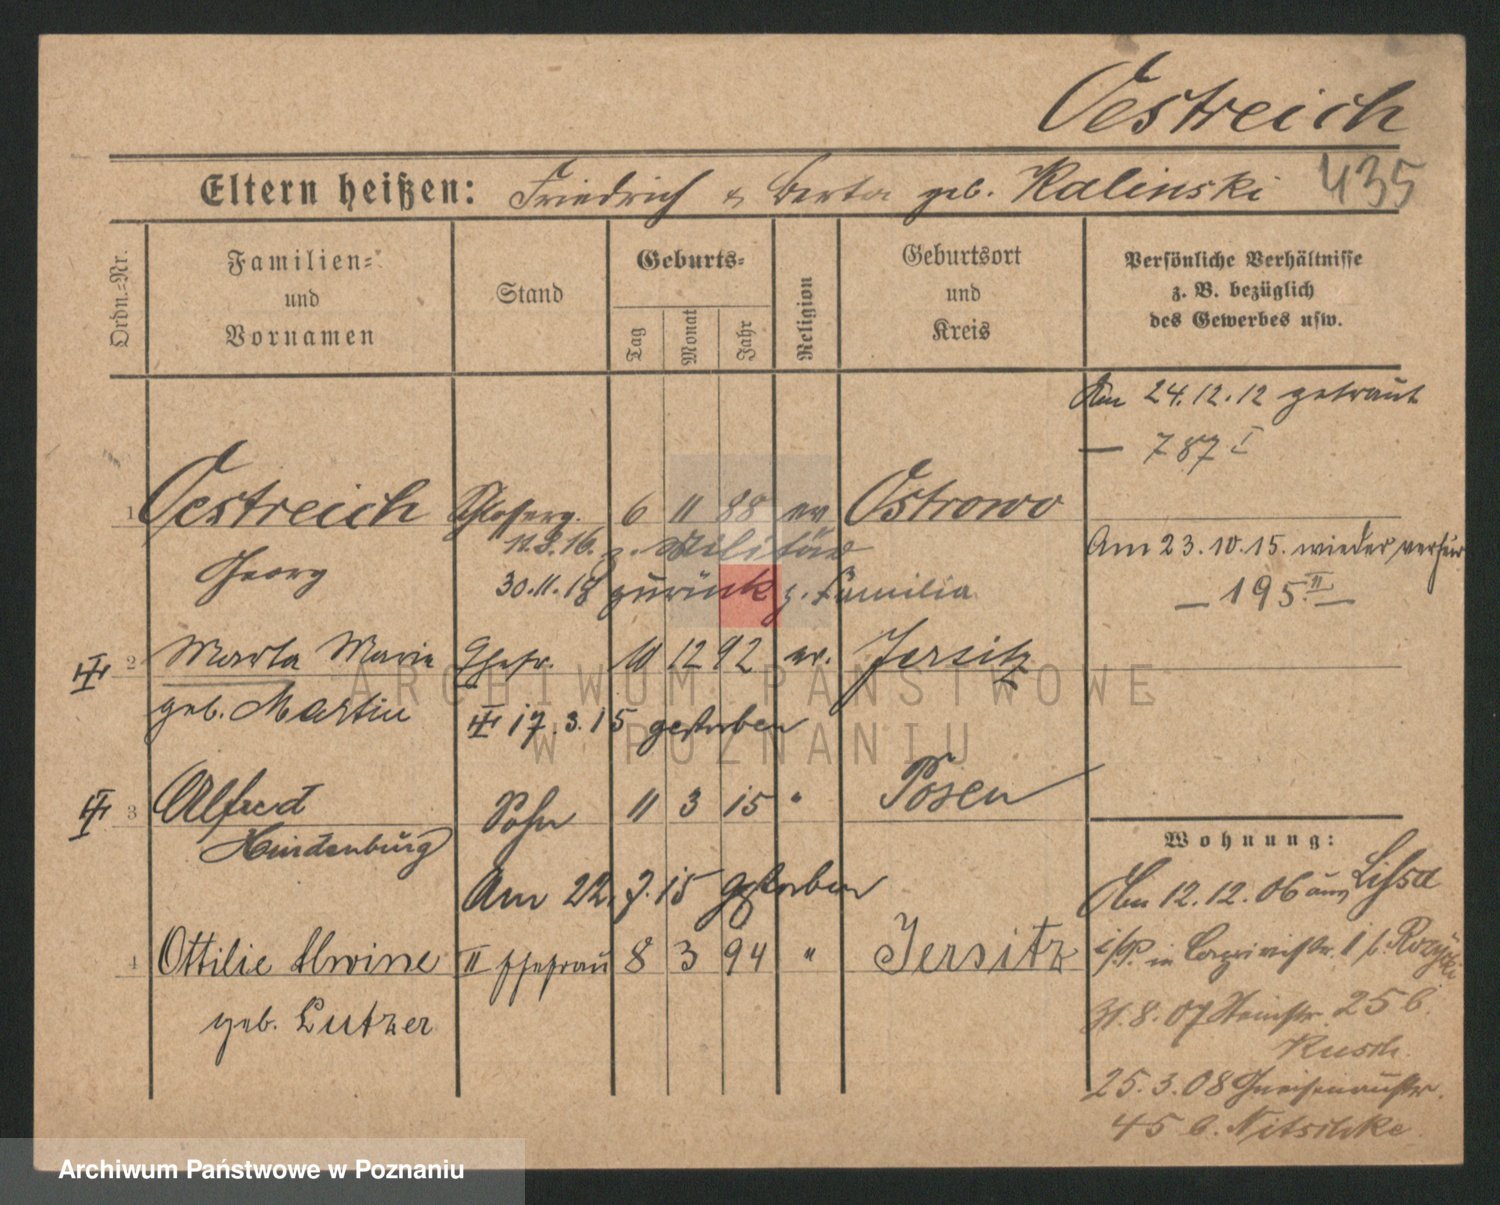 Oestreich
Eltern heißen: Friedrich & Berta geb. Kalinski 435
Ordn.=Nr.
Familien=
und
Vornamen
Stand
Geburts=
Tag
Monat
Jahr
Religion
Geburtsort
und
Kreis
Persönliche Verhältnisse
z. B. bezüglich
des Gewerbes usw.
Am 24.12.12 getraut
— 787 I
1 Oestreich Schlosserg. 6 11 88 ev Ostrowo
11.3.16. z. Militär
Am 23.10.15. wieder verheir
Georg 30.11.18 zurück z. Familie
— 195 II —
2 Marta Marie Ehefr. 10 12 92 ev. Jersitz
geb. Martin
17.3.15 gestorben
3 Alfred Sohn 11 3 15 " Posen
Hindenburg
Wohnung:
Am 22.7.15 gestorben
Am 12.12.06 aus Lissa
4 Ottilie Alwine II Ehefrau 8 3 94 " Jersitz
geb. Lutzer
31.8.07 25 b.
Rusch.
25.3.08 Gneisenaustr.
45 b. Nitschke
ARCHIWUM PAŃSTWOWE
W POZNANIU
Archiwum Państwowe w Poznaniu